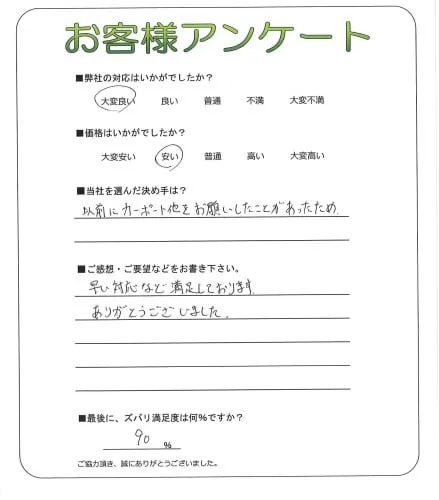 お客様アンケート
■弊社の対応はいかがでしたか?
大変良い 良い 普通 不満 大変不満
■価格はいかがでしたか?
大変安い 安い 普通 高い 大変高い
■当社を選んだ決め手は?
以前にカーポート他をお願いしたことがあったため
■ご感想・ご要望などをお書き下さい。
早い対応など満足しております。
ありがとうございました。
■最後に、ズバリ満足度は何%ですか?
90 %
ご協力頂き、誠にありがとうございました。